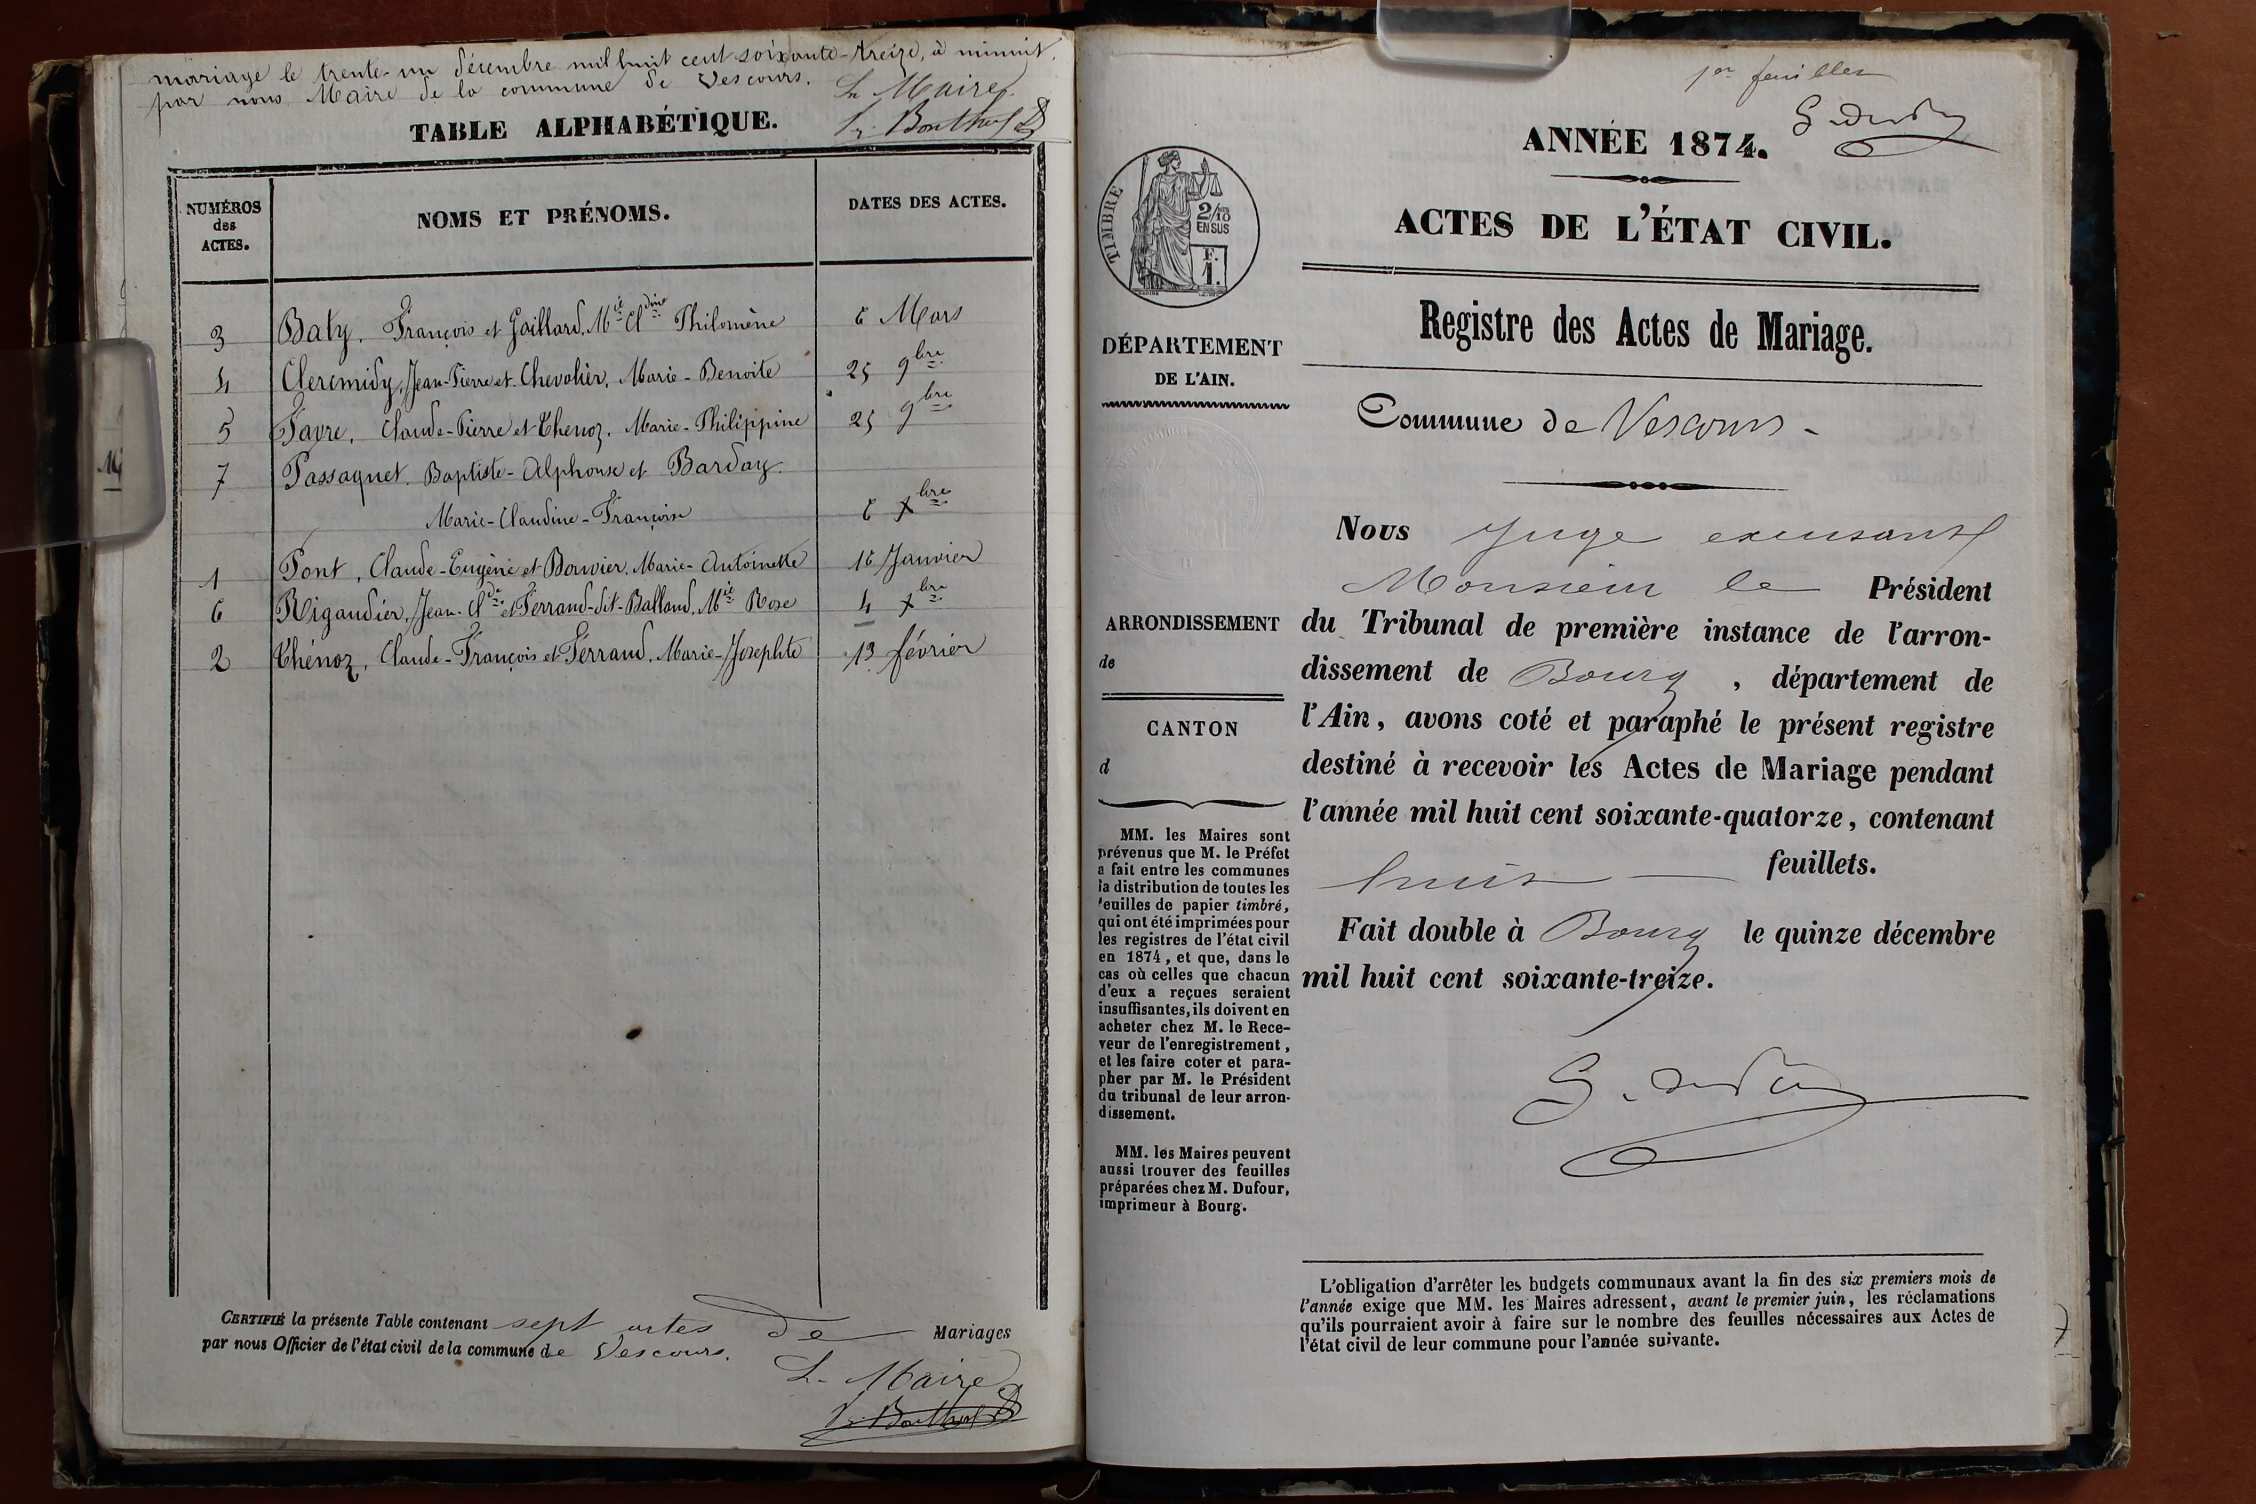 mariage le trente-un décembre mil huit cent soixante-treize, à minuit,
par nous Maire de la commune de Vescours.
Le Maire
TABLE ALPHABÉTIQUE.
NUMÉROS des ACTES.
NOMS ET PRÉNOMS.
DATES DES ACTES.
3 Baty, François et Gaillard, Mie Cldine Philomène 6 Mars
4 Clermidy, Jean-Pierre et Chevalier, Marie-Benoite 25 9bre
5 Favre, Claude-Pierre et Thenoz, Marie-Philippine 25 9bre
7 Passaquet, Baptiste-Alphonse et Barday
Marie-Claudine-Françoise 6 xbre
1 Pont, Claude-Eugène et Bouvier, Marie-Antoinette 16 Janvier
6 Rigaudier, Jean-Cde et Ferrand-dit-Balland, Mie Rose 4 xbre
2 Thénoz, Claude-François et Ferrand, Marie-Josephte 13 février
CERTIFIÉ la présente Table contenant sept actes de Mariages
par nous Officier de l'état civil de la commune de Vescours.
Le Maire
14
1er feuillet
ANNÉE 1874.
ACTES DE L'ÉTAT CIVIL.
TIMBRE
2/10
EN SUS
F.
1.
Registre des Actes de Mariage.
DÉPARTEMENT
DE L'AIN.
Commune de Vescours
ARRONDISSEMENT
de
CANTON
d
MM. les Maires sont
prévenus que M. le Préfet
a fait entre les communes
la distribution de toutes les
feuilles de papier timbré,
qui ont été imprimées pour
les registres de l'état civil
en 1874, et que, dans le
cas où celles que chacun
d'eux a reçues seraient
insuffisantes, ils doivent en
acheter chez M. le Rece-
veur de l'enregistrement,
et les faire coter et para-
pher par M. le Président
du tribunal de leur arron-
dissement.
MM. les Maires peuvent
aussi trouver des feuilles
préparées chez M. Dufour,
imprimeur à Bourg.
Nous Juge excusant
Monsieur le Président
du Tribunal de première instance de l'arron-
dissement de Bourg, département de
l'Ain, avons coté et paraphé le présent registre
destiné à recevoir les Actes de Mariage pendant
l'année mil huit cent soixante-quatorze, contenant
huit feuillets.
Fait double à Bourg le quinze décembre
mil huit cent soixante-treize.
L'obligation d'arrêter les budgets communaux avant la fin des six premiers mois de
l'année exige que MM. les Maires adressent, avant le premier juin, les réclamations
qu'ils pourraient avoir à faire sur le nombre des feuilles nécessaires aux Actes de
l'état civil de leur commune pour l'année suivante.
7